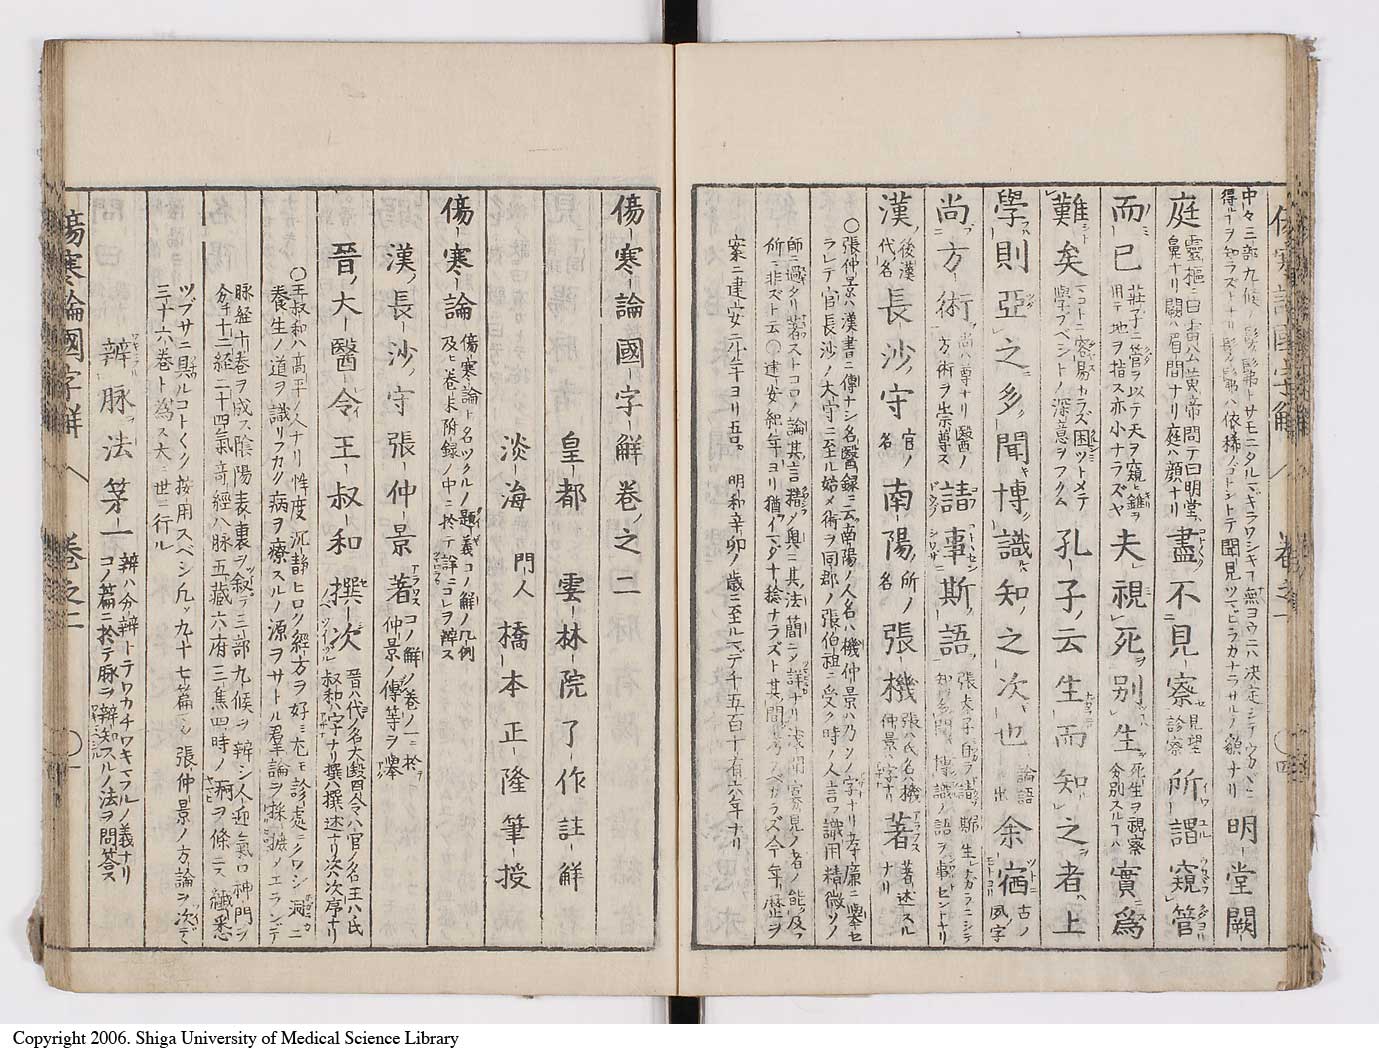 傷寒論國字解 卷之一 〇四
中々三部九候ノ髣髴トサモニタルマギラワシキコモ無ヨウニハ決定シテウカヾヒ得ルヿヲ知ラズトナリ髣髴ハ依稀ノゴトシトテ聞見ツマビラカナラサルノ貌ナリ 明堂闕
庭 靈樞ニ曰雷公黄帝問テ曰明堂ハ鼻ナリ闕ハ眉間ナリ庭ハ顔ナリ 盡不見察 見望診察 所謂窺管
而已 莊子ニ管ヲ以テ天ヲ窺ヒ錐ヲ用テ地ヲ指ス亦小ナラズヤ 夫視死別生 死生ヲ視察分別スルヿハ 實爲
難矣 マコトニ容易カラズ困ツトメテ學フベシトノ深意ヲフクム 孔子云生而知之者上
學則亞之多聞博識知之次也 論語ニ出 余宿 古ノ夙字
尚方術 尚ハ尊ナリ醫ノ方術ヲ崇尊ス 請事斯語
漢 後漢代ノ名 長沙守 官ノ名 南陽 所ノ名 張機 張ハ氏名ハ機仲景ハ字ナリ 著 著述スルナリ
〇張仲景ハ漢書ニ傳ナシ名醫録ニ云南陽ノ人名ハ機仲景ハ乃ソノ字ナリ孝廉ニ舉セラレテ官長沙ノ大守ニ至ル始メ術ヲ同郡ノ張伯祖ニ受ク時ノ人言フ識用精微ソノ
師ニ過タリ著ストコロノ論其言精シク奥ニ其法簡ニシテ詳ナリ浅聞寡見ノ者ノ能ク及フ所ニ非ズト云〇建安紀年ヨリ
案ニ建安二 年ヨリ吾 明和辛卯ノ歳ニ至ルマデ千五百十有六年ナリ
傷寒論國字解卷之二
皇都 雲林院了作註解
淡海 門人 橋本正隆筆授
傷寒論 傷寒論ト名ツクルノ題義コノ解ノ凡例及ヒ卷末附録ノ中ニ於テ詳ニコレヲ辨ス
漢長沙守張仲景著 コノ解ノ卷ノ一ニ於ヲ仲景ノ傳等ヲ舉
晉大醫令王叔和撰次 晉ハ代ノ名大醫令ハ官ノ名王ハ氏叔和ハ字ナリ撰ハ撰述ナリ次ハ次序ナリ
〇王叔和ハ高平ノ人ナリ性度沉静ヒロク經方ヲ好ミ尤モ診處ニクワシ洞ニ養生ノ道ヲ識リフカク病ヲ療スルノ源ヲサトル羣論ヲ採摭メエランデ
脉經十卷ヲ成ス陰陽表裏ヲ叙テ三部九候ヲ辨シ人迎氣口神門ヲ分チ十二經二十四氣竒經八脉五藏六府三焦四時ノ痾ヲ條ニス纎悉
ツブサニ具ルコトゴトク按用スベシ凡ソ九十七篇 張仲景ノ方論ヲ次デ三十六卷ト為ス大ニ世ニ行ル
辨脉法第一 辨ハ分辨トテワカチワキマフルノ義ナリコノ篇ニ於テ脉ヲ辨知スルノ法ヲ問答ス
傷寒論國字解 卷之二 〇一
Copyright 2006. Shiga University of Medical Science Library